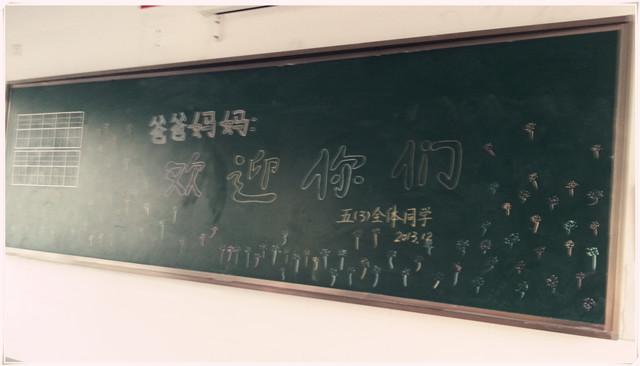 爸爸妈妈:
欢迎你们
五(3)全体同学
2013.12